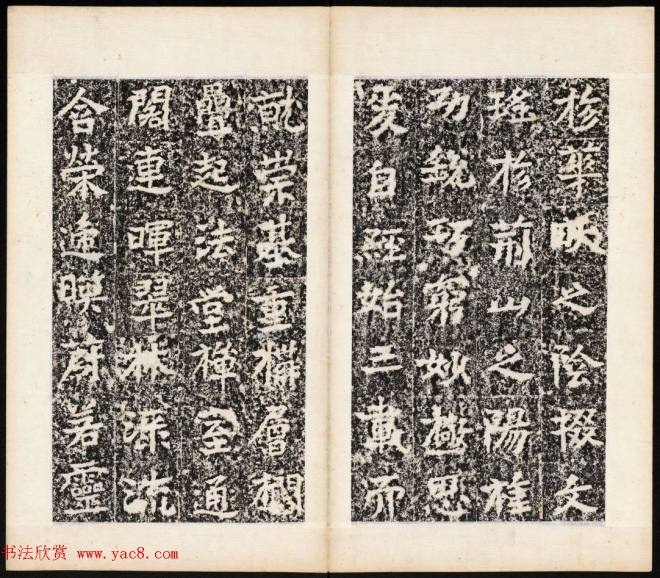 於華畎之陰掇文
瑤於荊山之陽旌
功銳巧窮妙極思
爰自經始三載而
就崇基重構層欄
疊起法堂禪室通
閣連暉翠林淥流
含榮遞暎蔚若靈
书法欣赏 www.yac8.com